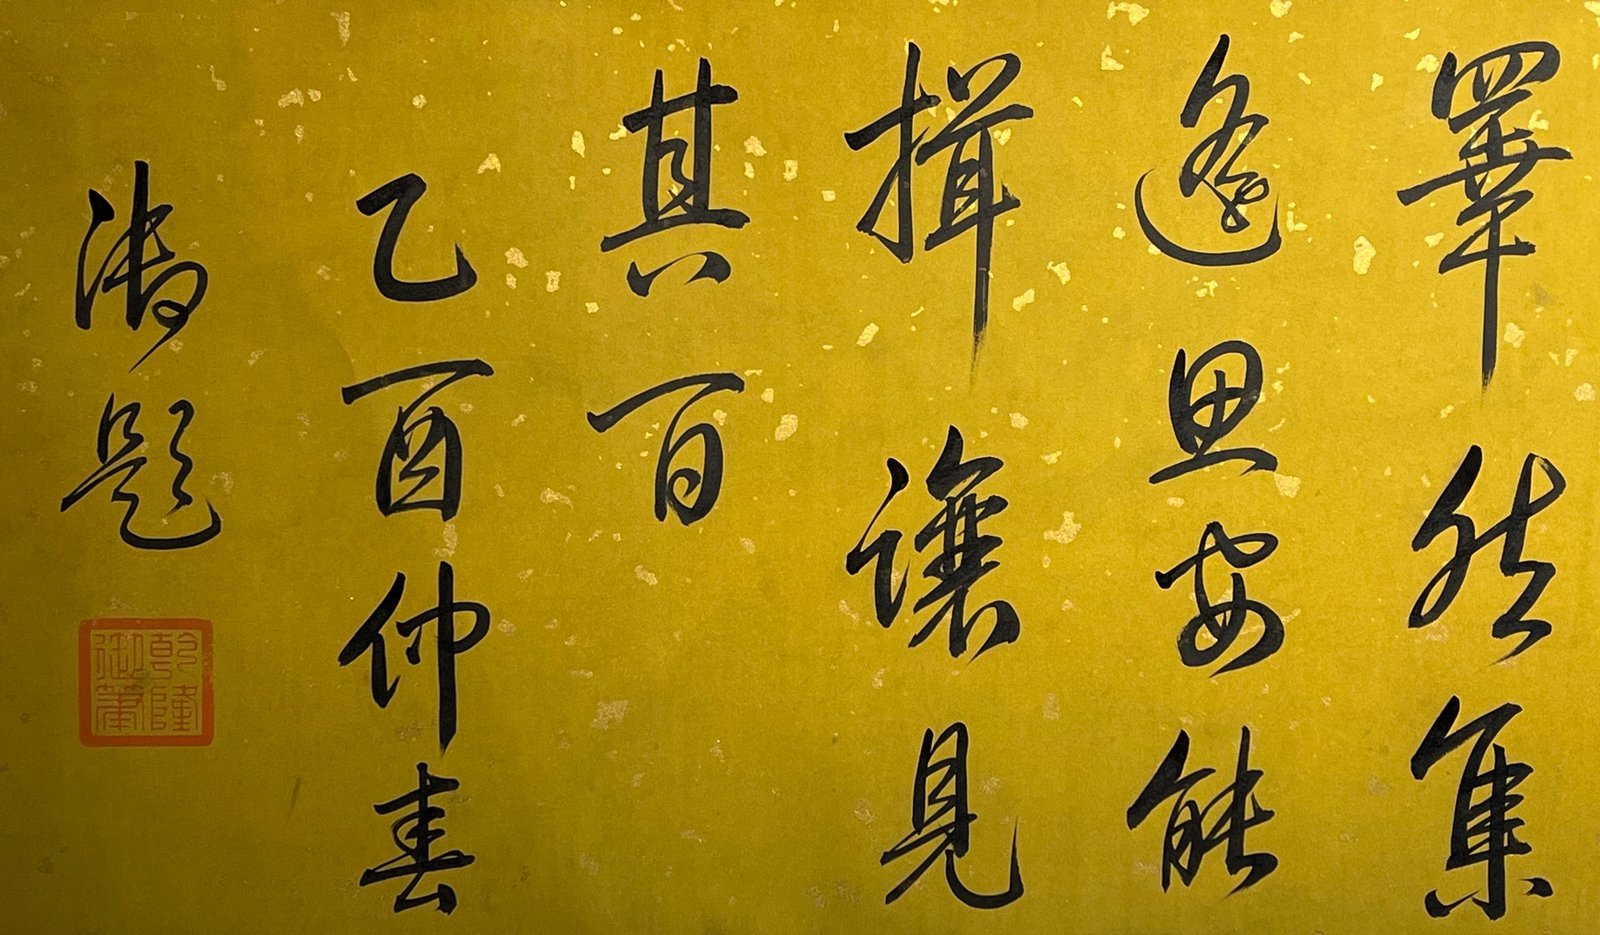 睪然集
遙思安能
揖讓見
其百
乙酉仲春
御題
乾隆御筆